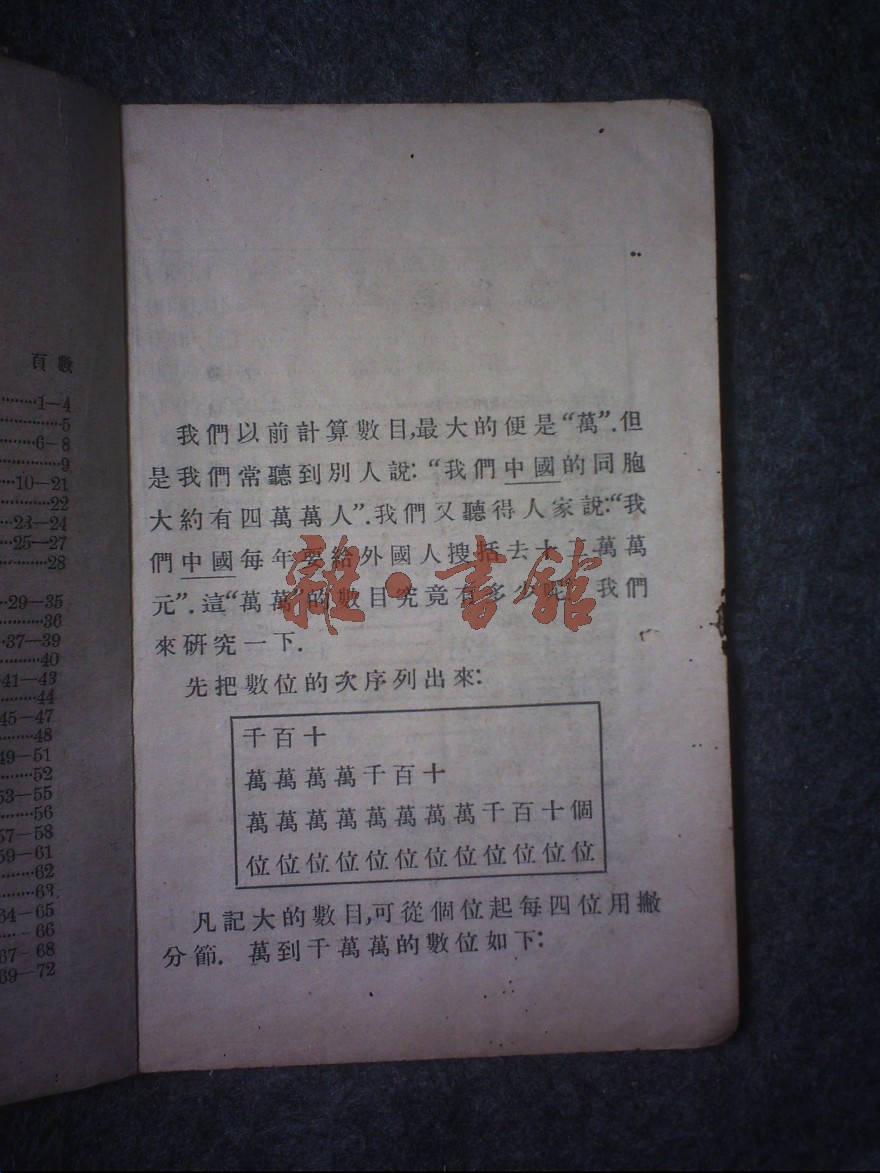 頁數
1—4
5
6—8
9
10—21
22
23—24
25—27
28
29—35
36
37—39
40
41—43
44
45—47
48
49—51
52
53—55
56
57—58
59—61
62
63
64—65
66
67—68
69—72
我們以前計算數目,最大的便是“萬”.但
是我們常聽到別人說:“我們中國的同胞
大約有四萬萬人”.我們又聽得人家說:“我
們中國每年要給外國人搜括去十二萬萬
元”.這“萬萬”的數目究竟有多少呢? 我們
來研究一下.
先把數位的次序列出來:
千百十
萬萬萬萬千百十
萬萬萬萬萬萬萬萬千百十個
位位位位位位位位位位位位
凡記大的數目,可從個位起每四位用撇
分節. 萬到千萬萬的數位如下:
雜·書館